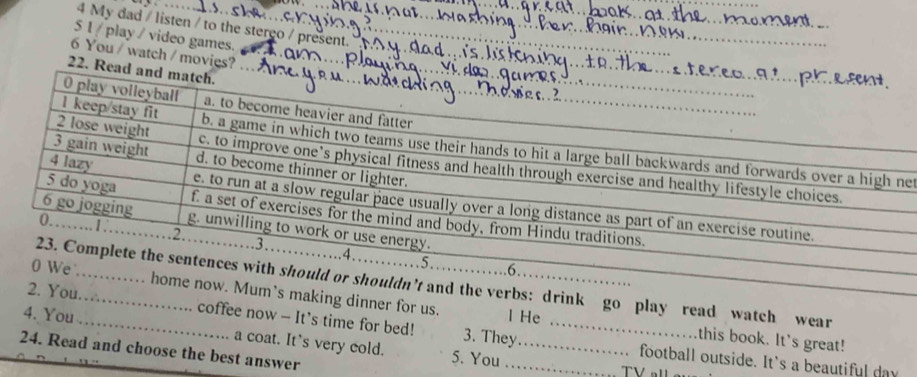 a great books at the moment.
Is she crying? She is not washing her hair now.
4 My dad / listen / to the stereo / present. My dad is listening to the stereo at present.
5 I / play / video games. I am playing video games.
6 You / watch / movies? Are you watching movies?
22. Read and match.
0 play volleyball a. to become heavier and fatter
1 keep/stay fit b. a game in which two teams use their hands to hit a large ball backwards and forwards over a high net
2 lose weight c. to improve one's physical fitness and health through exercise and healthy lifestyle choices.
3 gain weight d. to become thinner or lighter.
4 lazy e. to run at a slow regular pace usually over a long distance as part of an exercise routine.
5 do yoga f. a set of exercises for the mind and body, from Hindu traditions.
6 go jogging g. unwilling to work or use energy.
0.........1.............2.............3..............4.............5..............6..............
23. Complete the sentences with should or shouldn't and the verbs: drink go play read watch wear
0 We ............ home now. Mum's making dinner for us. 1 He ......................this book. It's great!
2. You.................. coffee now – It's time for bed! 3. They................. football outside. It's a beautiful day
4. You ...................... a coat. It's very cold. 5. You ................. TV
24. Read and choose the best answer